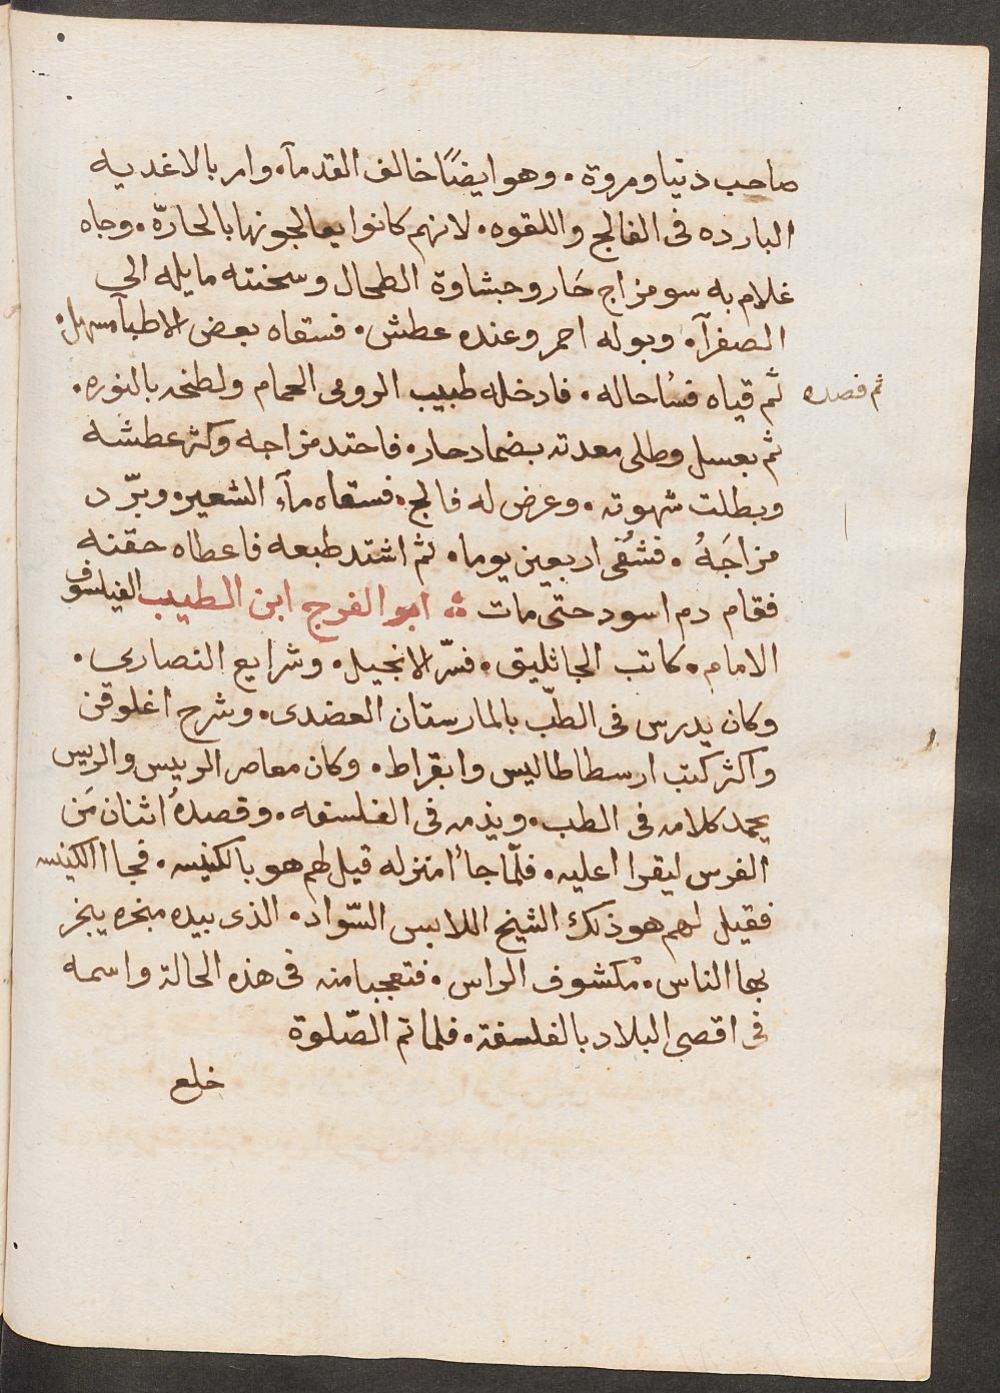 صاحب دنيا ومروة. وهو ايضًا خالف القدمآ. وامر بالاغديه
البارده فى الفالج واللقوه. لانهم كانوا يعالجونها بالحارّة. وجاه
غلام به سو مزاج حَار وجشاوة الطحال وسخنته مايله الى
الصفرآ. وبوله احمر وعنده عطش. فسقاه بعض الاطبآ مسهل.
ثم قياه فسُا حاله. فادخله طبيب الرومى الحمام ولطخه بالنوره.
ثم فصده
ثم بعسل وطلى معدته بضماد حار. فاحتد مزاجه وكثر عطشه
وبطلت شهوته. وعرض له فالج. فسقاه مآء الشعير. وبرّد
مزاجَهُ. فشُفى اربعين يوما. ثم اشتد طبعه فاعطاه حقنه
فقام دم اسود حتى مات ஃ ابو الفرج ابن الطيب الفيلسوف
الامام. كاتب الجاثليق. فسّر الانجيل. وشرايع النصارى.
وكان يدرس فى الطّب بالمارستان العضدى. وشرح اغلوقن
واكثر كتب ارسطاطاليس وابقراط. وكان معاصر الرييس والرييس
يحمد كلامه فى الطب. ويذمه فى الفلسفه. وقصدهُ اثنان مَن
الفرس ليقرا اعليه. فلمّا جاُا منزله قيل لهم هو بالكنيسه. فجاا الكنيسه
فقيل لهم هو ذلك الشيخ اللابس السّواد. الذى بيده مبخره يبخر
بها الناس. مكشوف الراس. فتعجبا منه فى هذه الحالة واسمه
فى اقصى البلاد بالفلسفة. فلما تم الصّلوة
خلع